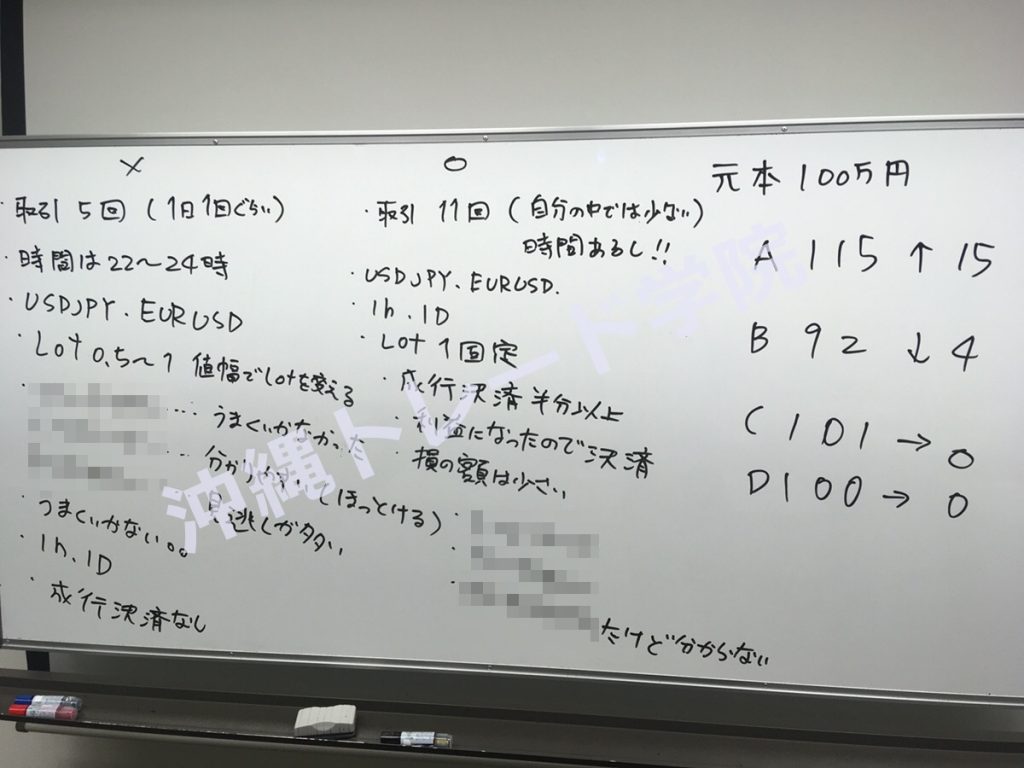 ×
・取引 5回 (1日1回ぐらい)
・時間は22〜24時
・USDJPY.EURUSD
・Lot 0.5〜1 値幅でLotを変える
・
・・・・ うまくいかなかった
・・・ 分かりやすい (ほっとける)
見逃しが多い
・うまくいかない。。
・1h.1D
・成行決済なし
○
・取引 11回 (自分の中では少ない)
時間あるし!!
・USDJPY.EURUSD.
・1h.1D
・Lot 1固定
・成行決済 半分以上
・利益になったので決済
・損の額は少さい
・
・
・
だけど分からない
元本100万円
A 115 ↑ 15
B 92 ↓ 4
C 101 → 0
D 100 → 0
沖縄トレード学院